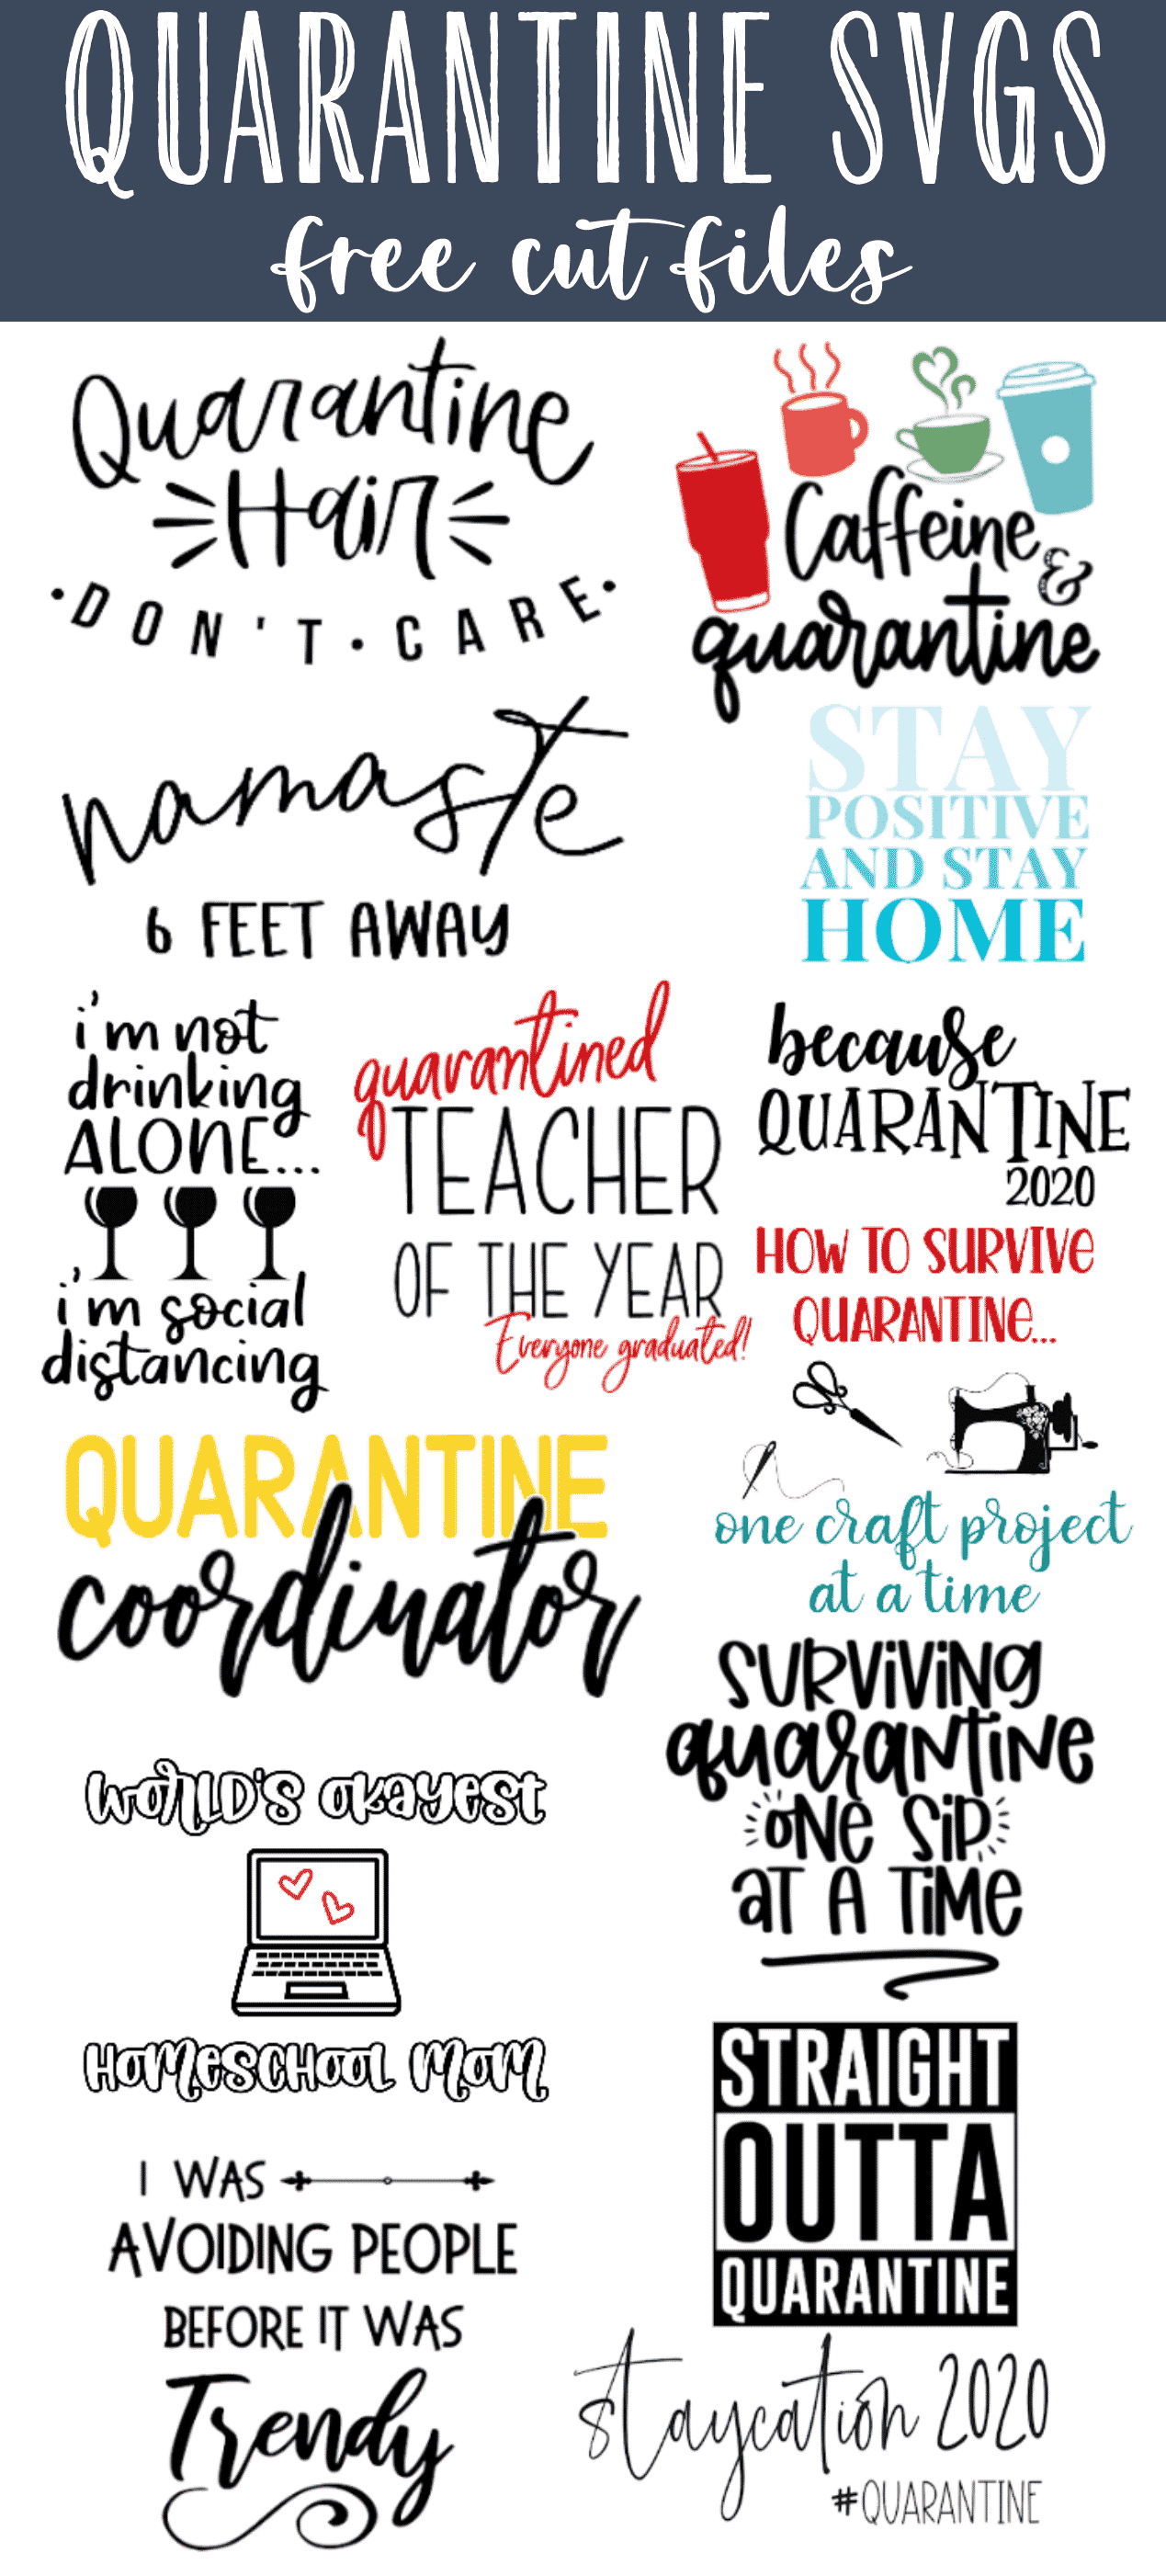 QUARANTINE SVGS
free cut files
Quarantine
Hair
•DON'T•CARE•
Caffeine
&
quarantine
namaste
6 FEET AWAY
STAY
POSITIVE
AND STAY
HOME
i'm not
drinking
ALONE...
i'm social
distancing
quarantined
TEACHER
OF THE YEAR
Everyone graduated!
because
QUARANTINE
2020
HOW TO SURVIVE
QUARANTINE...
one craft project
at a time
QUARANTINE
coordinator
SURViViNG
quarantine
ONE SiP
aT A TiMe
WORLD'S OKAYEST
HOMESCHOOL MOM
STRAIGHT
OUTTA
QUARANTINE
I WAS
AVOIDING PEOPLE
BEFORE IT WAS
Trendy
staycation 2020
#QUARANTINE